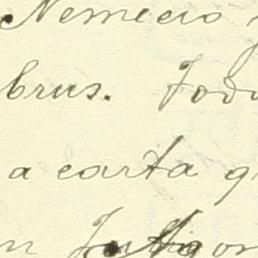 Nemecio
brus. Todo
a carta q
n